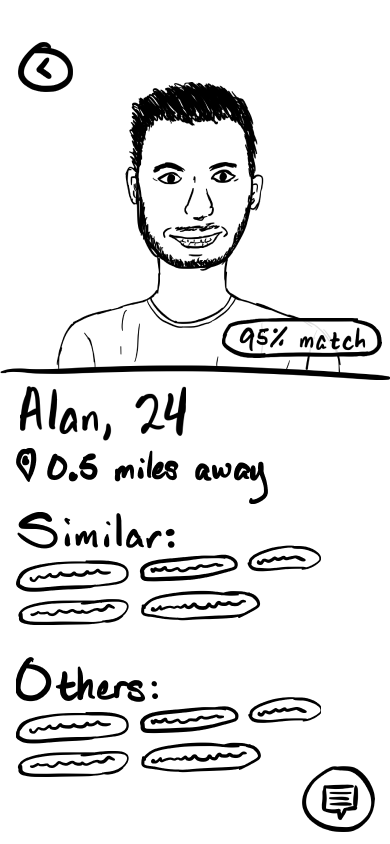 95% match
Alan, 24
0.5 miles away
Similar:
Others: